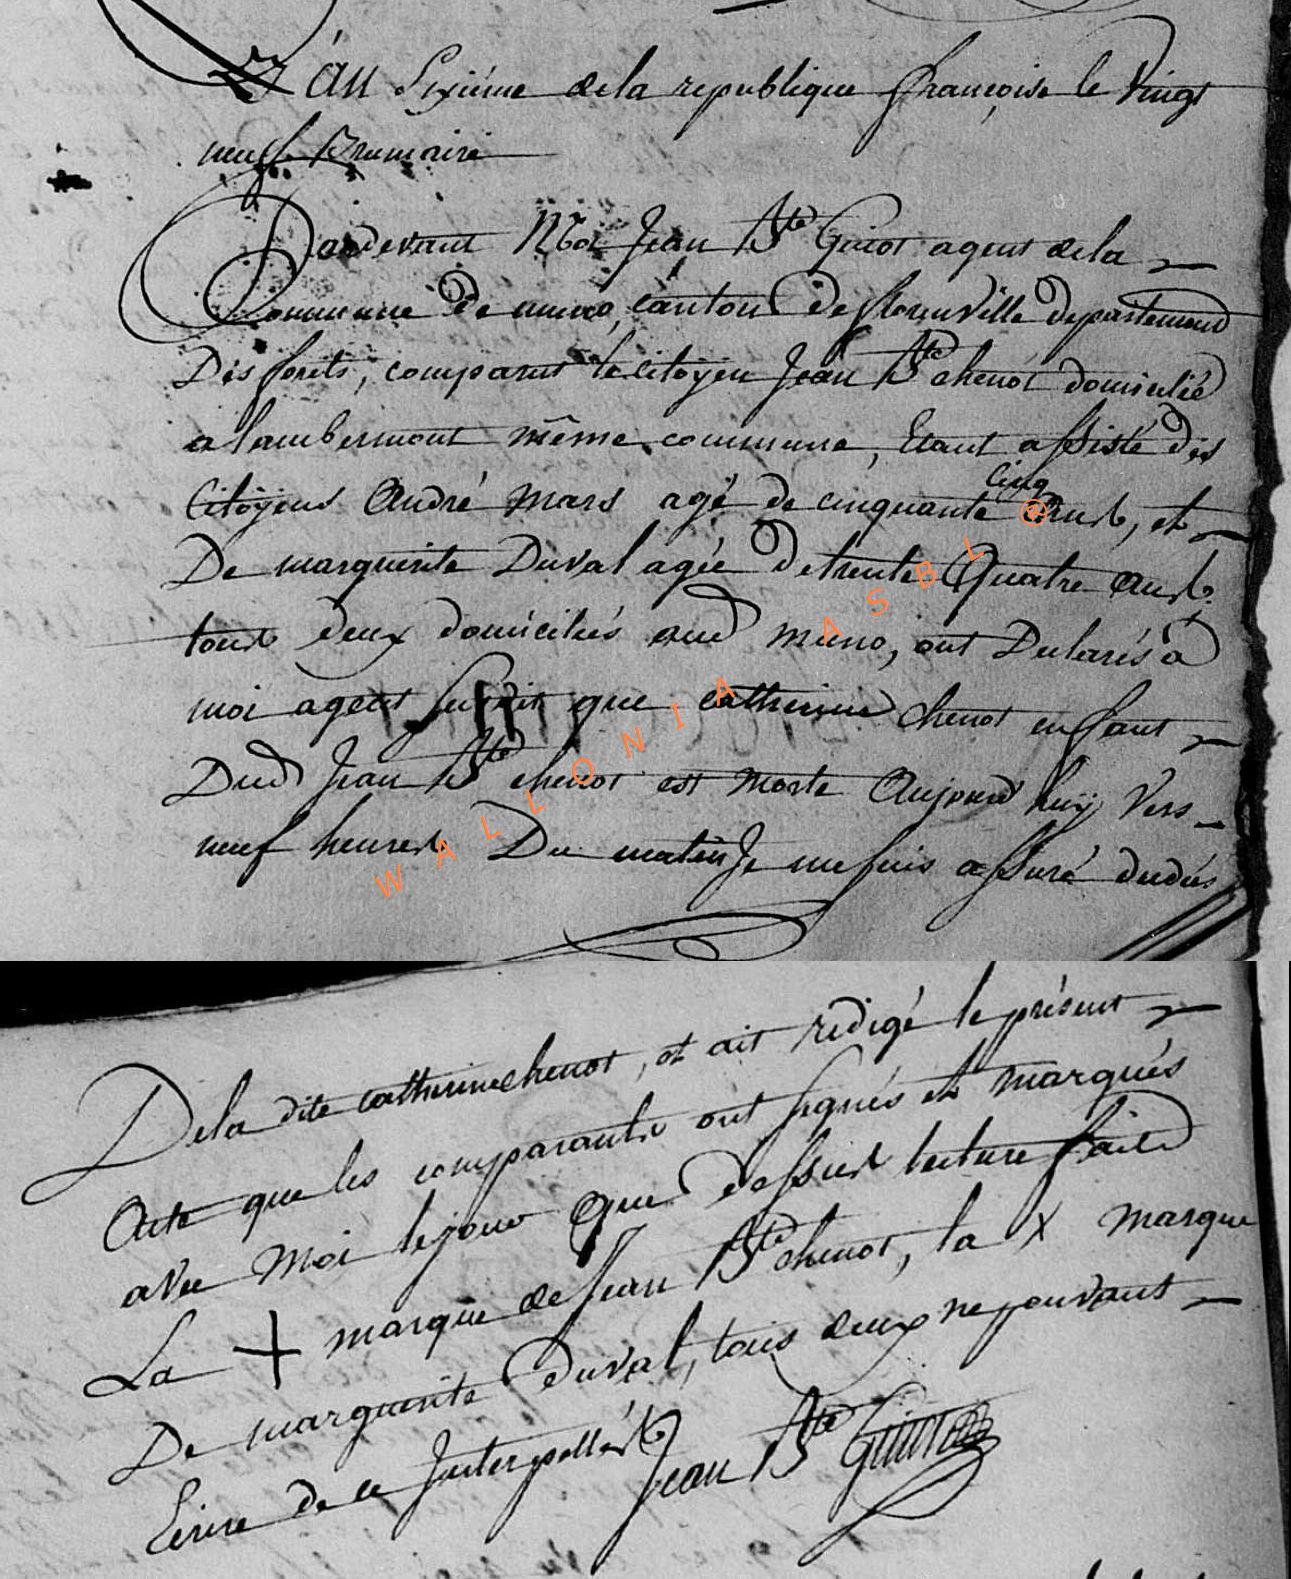 L'an Sixiéme de la republique françoise le Vingt
neuf Brumaire
Pardevant Moi Jean Bte Guiot agent de la
Commune de muno, canton de florenville departement
Des forets, comparut le citoyen Jean Bte chenot domicilié
a lambermont même commune, Etant assisté des
Citoyens André Mars agé de cinquante cinq Ans, et
De marguerite Duval agée de trente Quatre Ans
tous deux domiciliés aud muno, ont Declarés a
moi agent susdit que catherine chenot enfant
Dud Jean Bte chenot est Morte Aujourd huÿ Vers
neuf heures Du matin Je me suis assuré dudés
WALLONIA ASBL ®
De la dite catherine chenot, et ait redigé le présent
Acte que les comparants ont signés et marqués
avec Moi le jour que dessus lecture faite
La + marque de Jean Bte chenot, la x marque
De marguerite duval, tous deux ne pouvant
Ecrire de ce Interpellés Jean Bte Guiot